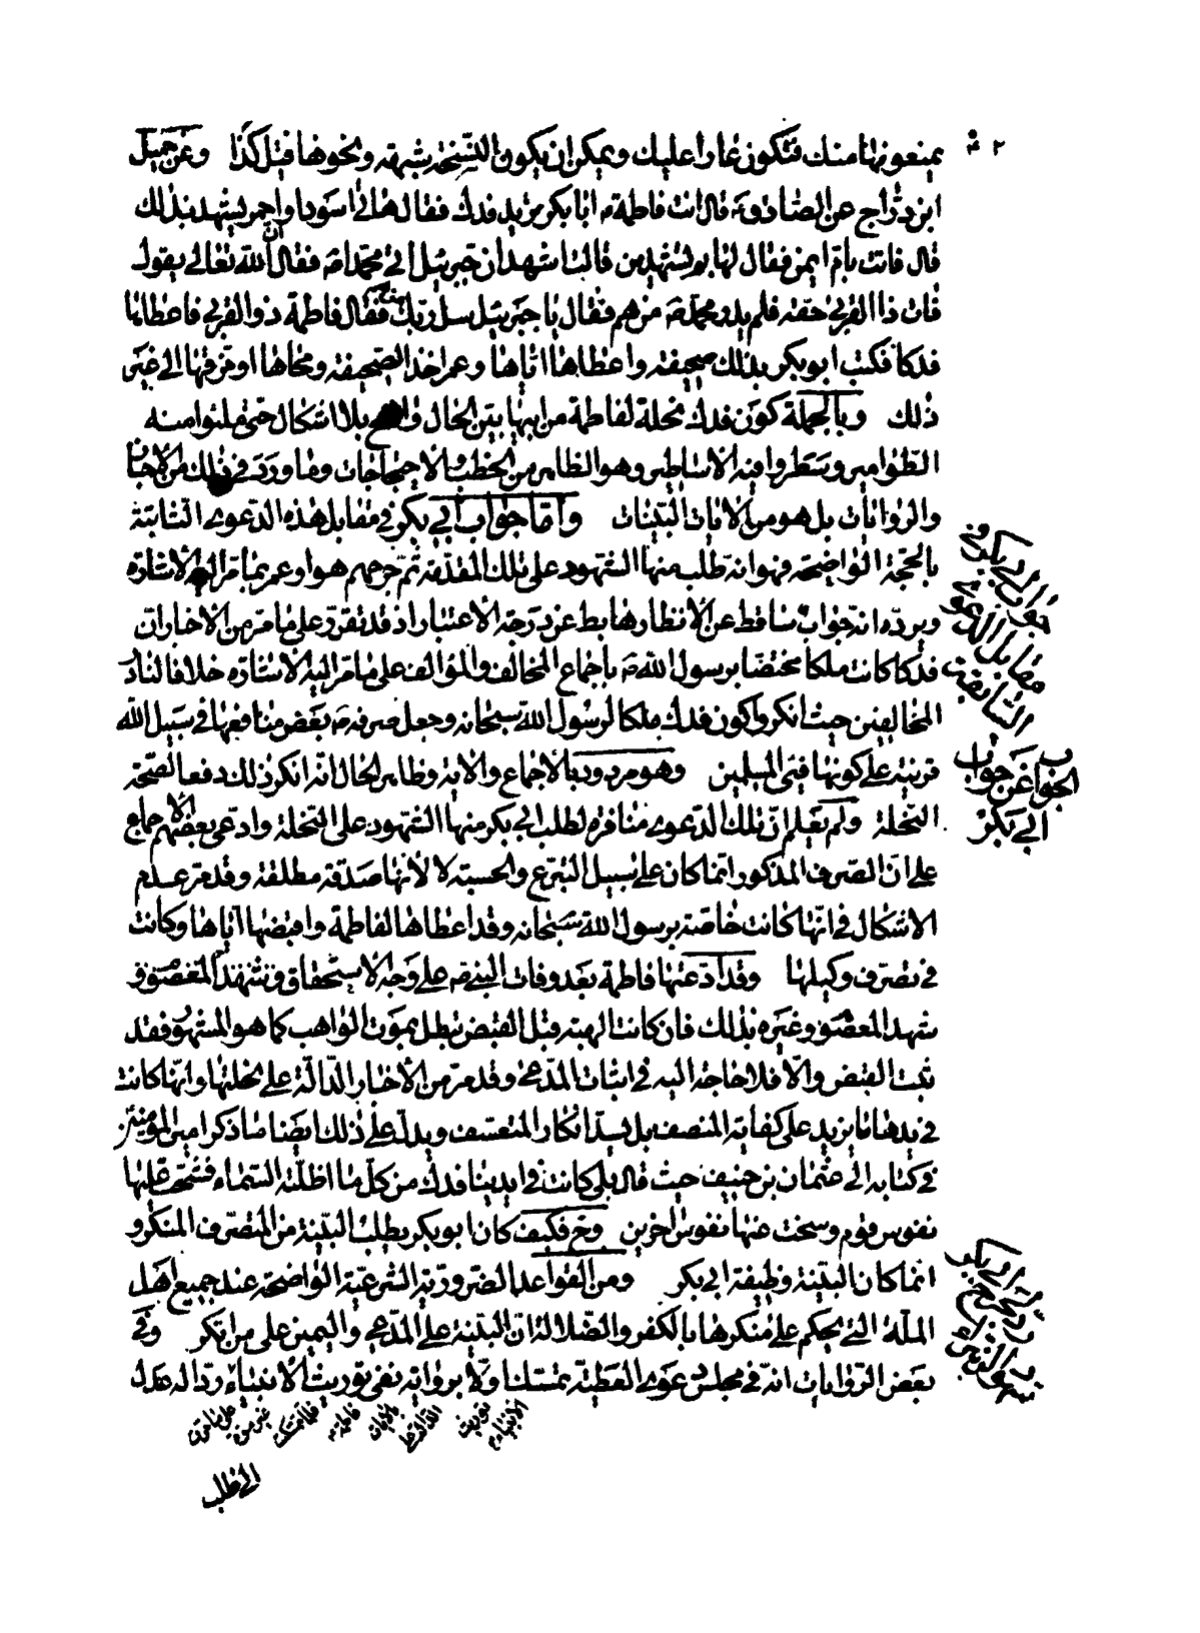 يمنعونها منك فتكون عارا عليك ويمكن ان يكون النسخة بشبهة ونحوها قيل كذا وعن جميل
ابن دراج عن الصادق ع قال اتت فاطمة ع ابا بكر تريد فدك فقال هاتي اسود او احمر يشهد بذلك
قال فاتت بام ايمن فقال لها بم تشهدين قالت اشهد ان جبرئيل اتى محمدا ص فقال ان الله تعالى يقول
فات ذا القربى حقه فلم يدر محمد ص من هم فقال يا جبرئيل سل ربك من هم فقال فاطمة ذو القربى فاعطاها
فدكا فكتب ابو بكر بذلك صحيفة واعطاها اياها وعمر اخذ الصحيفة ومحاها او مزقها الى غير
ذلك وبالجملة كون فدك نحلة لفاطمة من ابيها بين الحال واضح بلا اشكال حتى ملئوا منه
الطوامير وسطروا فيه الاساطير وهو الظاهر من الخطب والاحتجاجات وما ورد في ذلك من الاخبار
والروايات بل هو من الايات البينات واما جواب ابي بكر في مقابل هذه الدعوى الثابتة
بالحجة الواضحة فهو انه طلب منها الشهود على تلك المقدمة ثم جرحهم هو او عمر بما مر اليه الاشارة
ويرده انه جواب ساقط عن الانظار هابط عن درجة الاعتبار اذ قد تقرر على ما مر من الاخبار ان
فدكا كانت ملكا مختصا برسول الله ص باجماع المخالف والمؤالف على ما مر اليه الاشارة خلافا لنادر
المخالفين حيث انكروا كون فدك ملكا لرسول الله سبحانه وجعل صرفه ص بعض منافعها في سبيل الله
قرينة على كونها فيئ المسلمين وهو مردود بالاجماع والاية وظاهر الحال انه انكر ذلك دفعا لصحة
النحلة ولم يعلم ان تلك الدعوى منافرة لطلب ابي بكر منها الشهود على النحلة وادعى بعضهم الاجماع
على ان الصرف المذكور انما كان على سبيل التبرع والحسبة لا لانها صدقة مطلقة وقد مر عدم
الاشكال في انها كانت خاصة برسول الله سبحانه وقد اعطاها لفاطمة واقبضها اياها وكانت
في تصرف وكيلها وقد ادعتها فاطمة بعد وفات النبي ص على وجه الاستحقاق وشهد المعصوم و
شهد المعصوم وغيره بذلك فان كانت الهبة قبل القبض تبطل بموت الواهب كما هو المشهور فقد
ثبت القبض والا فلا حاجة اليه في اثبات المدعى وقد مر من الاخبار الدالة على نحلتها وانها كانت
في يدها ما يزيد على كفاية المنصف بل يسد انكار المتعسف ويدل على ذلك ايضا ما ذكر امير المؤمنين
في كتابه الى عثمان بن حنيف حيث قال بلى كانت في ايدينا فدك من كل ما اظلته السماء فشحت عليها
نفوس قوم وسخت عنها نفوس اخرين وح فكيف كان ابو بكر يطلب البينة من المتصرف المنكر و
انما كان البينة وظيفة ابي بكر ومن القواعد الضرورية الشرعية الواضحة عند جميع اهل
الملة التي يحكم على منكرها بالكفر والضلالة ان البينة على المدعي واليمين على من انكر وفي
بعض الروايات انه في مجلس دعوى العطية تمسك اولا برواية نفي توريث الانبياء ردا له عدل
الى طلب
جواب ابي بكر في
مقابل الدعوى
الثابتة
الجواب عن جواب
ابي بكر